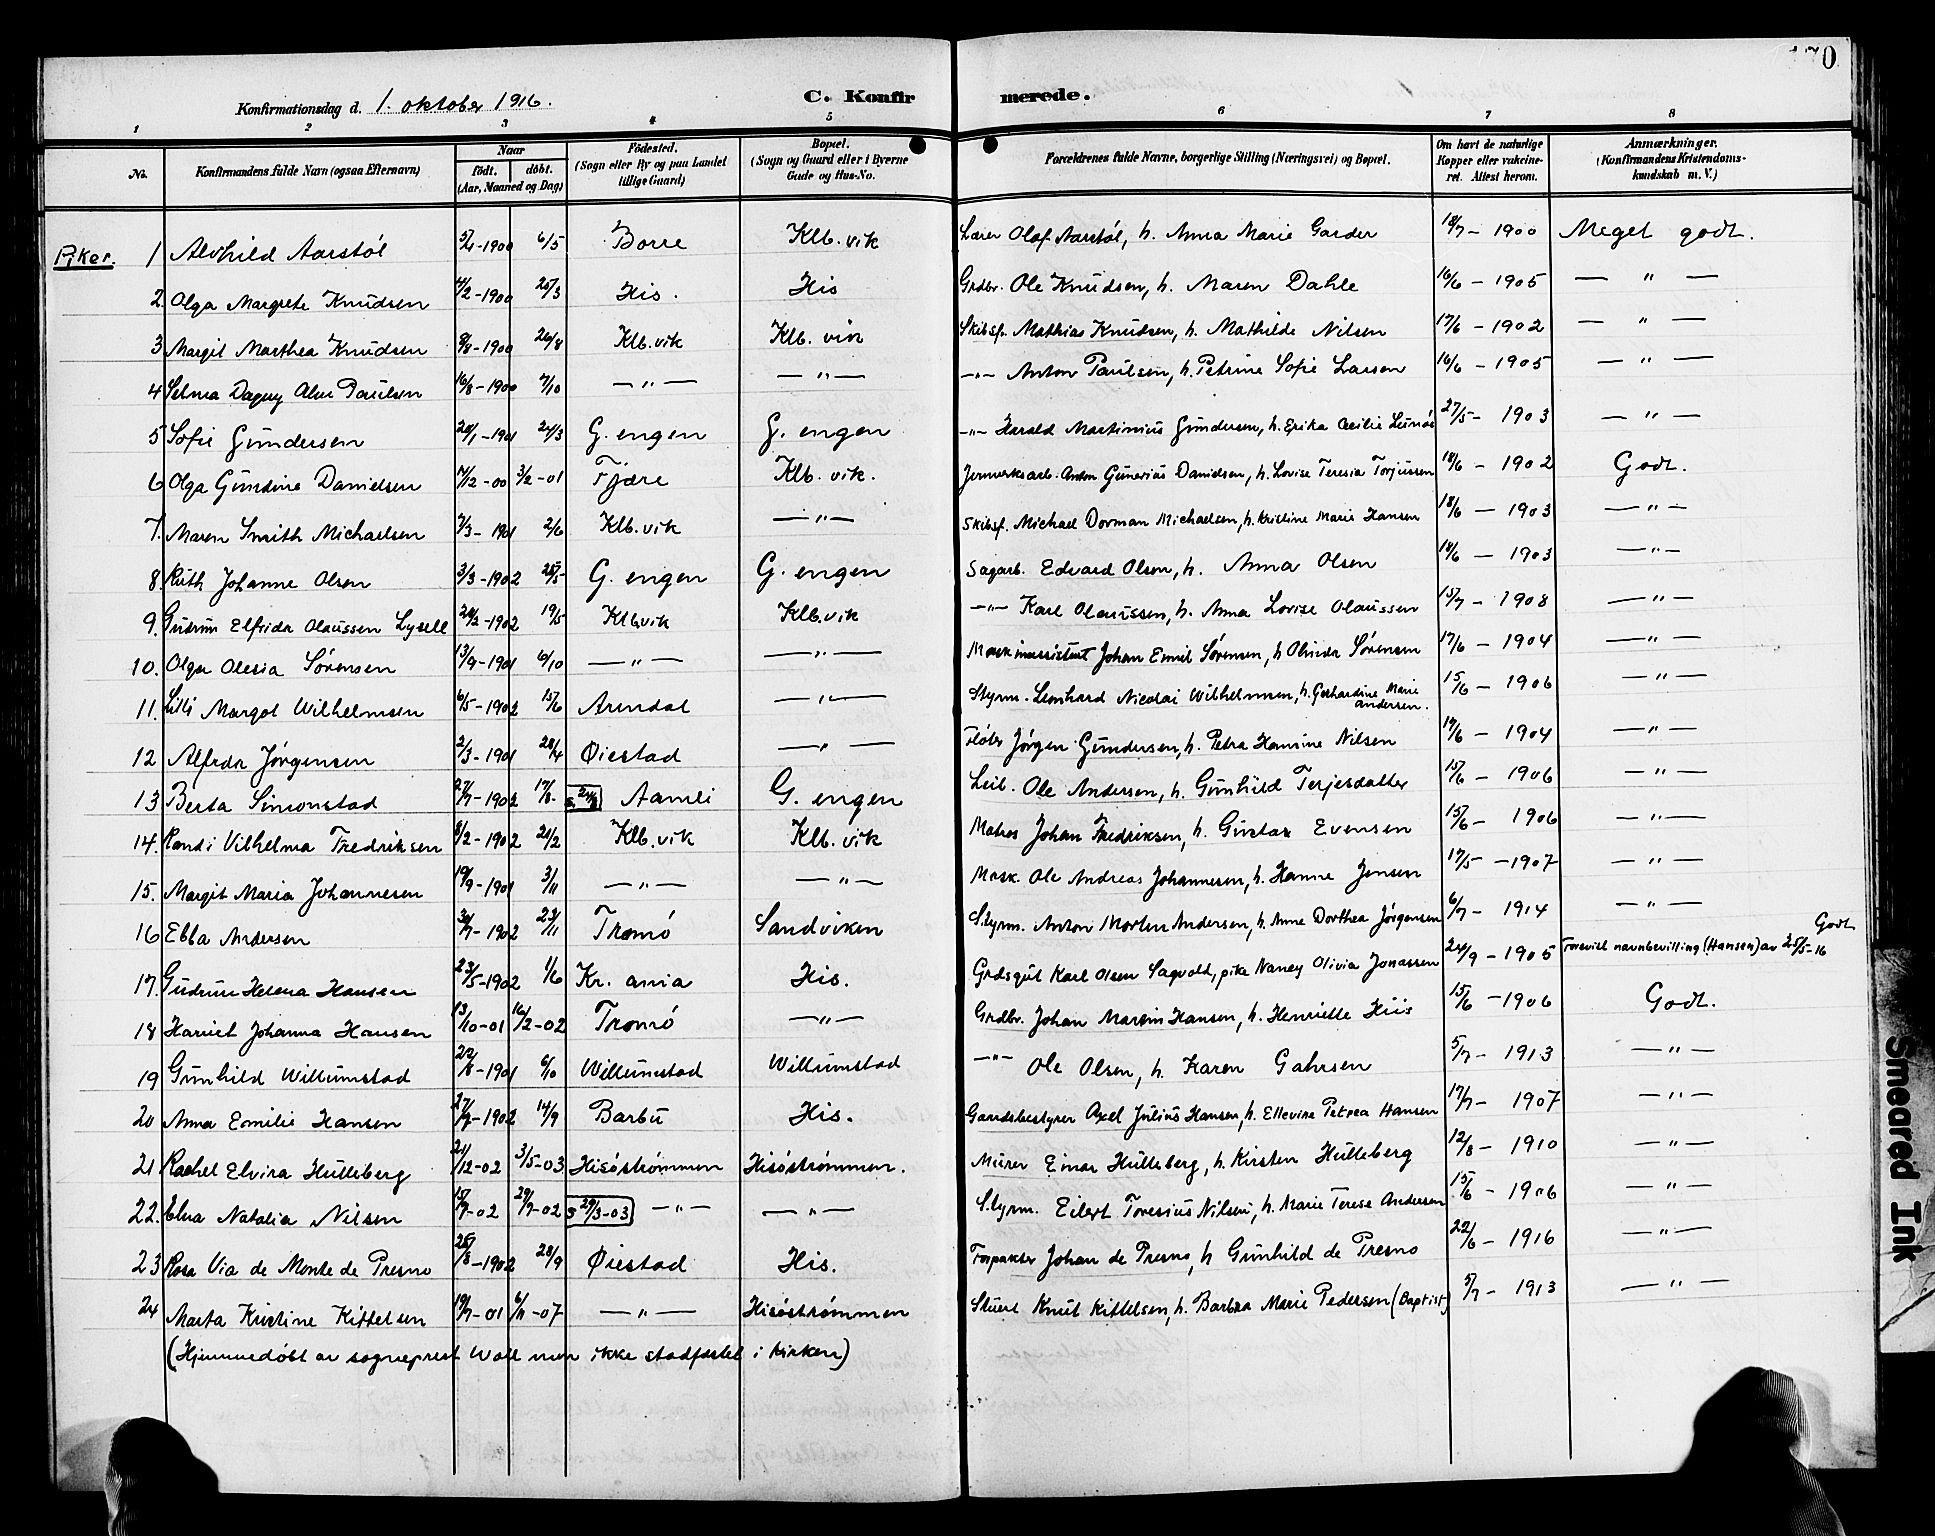 170
Konfirmationsdag d. 1. oktober 1916. C. Konfirmerede.
1 2 3 4 5 6 7 8
No. Konfirmandens fulde Navn (ogsaa Efternavn) Naar født. døbt. (Aar, Maaned og Dag) Fødested. (Sogn eller By og paa Landet tillige Gaard) Bopæl. (Sogn og Gaard eller i Byerne Gade og Hus-No. Forældrenes fulde Navne, borgerlige Stilling (Næringsvei) og Bopæl. Om havt de naturlige Kopper eller vakcineret. Attest herom. Anmærkninger. (Konfirmandens Kristendomskundskab m. V.)
Piker. 1 Alvhild Aarstøl 5/4-1900 6/5 Borre Klb. vik Lærer Olaf Aarstøl, h. Anna Marie Garder 18/7 - 1900 Meget godt.
2. Olga Margrete Knudsen 4/2-1900 25/3 His. His Grdbr. Ole Knudsen, h. Maren Dahle 16/6 - 1905 — " —
3 Margit Marthea Knudsen 9/8-1900 26/8 Klb. vik Klb. vik Skibsf. Mathias Knudsen, h. Mathilde Nilsen 17/6 - 1902 — " —
4 Selma Dagny Alvi Paulsen 16/8-1900 7/10 — " — — " — -"- Anton Paulsen, h. Petrine Sofie Larsen 16/6 - 1905 — " —
5 Sofie Gundersen 20/1-1901 24/3 G. engen G. engen -"- Harald Martinius Gundersen, h. Erika Cecilie 27/5 - 1903 — " —
6 Olga Gundine Danielsen 7/12-00 3/2-01 Fjære Klb. vik. Jernverksarb. Anton Gunerius Danielsen, h. Lovise Teresia Torjussen 18/6 - 1902 Godt.
7. Maren Smith Michaelsen 7/3-1901 2/6 Klb. vik — " — Skibsf. Michael Dorman Michaelsen, h. Kristine Marie Hansen 18/6 - 1903 — " —
8. Ruth Johanne Olsen 3/3-1902 25/5 G. engen G. engen Sagarb. Edvard Olsen, h. Anna Olsen 18/6 - 1903 — " —
9. Gudrun Elfrida Olaussen Lysell 24/2-1902 19/5 Klb.vik Klb.vik -"- Karl Olaussen, h. Anna Lovise Olaussen 15/7 - 1908 — " —
10. Olga Olesia Sørensen 13/9-1901 6/10 — " — — " — Maskinassistent Johan Emil Sørensen, h Olinda Sørensen 17/6 - 1904 — " —
11. Lilli Margot Wilhelmsen 6/5-1902 15/6 Arendal — " — Styrm. Leonhard Nicolai Wilhelmsen, h. Gerhardine Marie Andersen. 15/6 - 1906 — " —
12 Alfrida Jørgensen 2/3-1901 28/4 Øiestad — " — Fløter Jørgen Gundersen, h. Petra Hansine Nilsen 17/6 - 1904 — " —
13 Berta Simonstad 27/7-1902 17/8. Aamli G. engen Leil. Ole Andersen, h. Gunhild Terjesdatter 15/6 - 1906 — " —
14. Randi Vilhelma Fredriksen 8/2-1902 21/2 Klb. vik Klb. vik Matros Johan Fredriksen, h. Gusta Evensen 15/6 - 1906 — " —
15. Margit Maria Johannesen 19/9-1901 3/11 — " — — " — Mask. Ole Andreas Johannesen, h. Hanne Jensen 17/5 - 1907 — " —
16 Ebba Andersen 30/7-1902 23/11 Tromö Sandviken Styrm. Anton Morten Andersen, h. Anne Dorthea Jørgensen 6/7 - 1914 — " —
17. Gudrun Helena Hansen 23/5-1902 1/6 Kr. ania His. Grdsgut Karl Olsen Sagvold, pike Nancy Olivia Jonassen 24/9 - 1905 Forevist navnbevilling (Hansen) av 25/5-16 Godt
18 Harriet Johanna Hansen 13/10-01 16/2-02 Tromö — " — Grdbr. Johan Martin Hansen, h. Henriette Hiis 15/6 - 1906 Godt.
19 Gunhild Willumstad 22/8-1901 6/10 Willumstad Willumstad -"- Ole Olsen, h. Karen Gahrsen 5/7 - 1913 — " —
20 Anna Emilie Hansen 27/7-1902 14/9 Barbu His. Gaardsbestyrer Axel Julius Hansen, h. Ellevine Petrea Hansen 17/7 - 1907 — " —
21 Rachel Elvira Hulleberg 21/12-02 3/5-03 Hisöströmmen Hisöströmmen. Murer Einar Hulleberg, h. Kirsten Hulleberg 12/8 - 1910 — " —
22. Elna Natalia Nilsen 15/7-02 29/7-02 s 29/3-03 — " — — " — Styrm. Eilert Toresius Nilsen, h. Marie Terese Andersen 15/6 - 1906 — " —
23 Rosa Via de Monte de Presno 25/8-1902 28/9 Øiestad His. Forpakter Johan de Presno, h Gunhild de Presno 22/6 - 1916 — " —
24 Marta Kristine Kittelsen 19/7-01 6/11-07 — " — Hisöströmmen Stuert Knut Kittelsen, h. Barbra Marie Pedersen (Baptist) 5/7 - 1913 — " —
(Hjemmedøbt av sogneprest Wall men ikke stadfæstet i kirken)
Smeared Ink